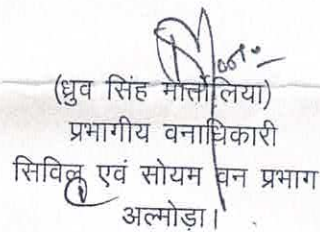 (ध्रुव सिंह मर्तोलिया)
प्रभागीय वनाधिकारी
सिविल एवं सोयम वन प्रभाग
अल्मोड़ा।